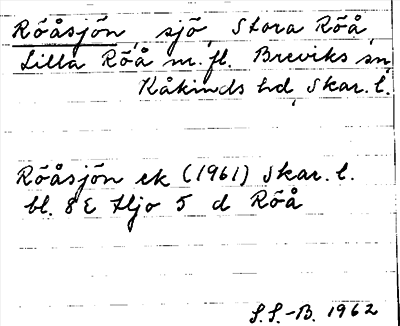 Röåsjön, sjö, Stora Röå,
Lilla Röå m. fl. Breviks sn,
Kåkinds hd, Skar. l.
Röåsjön ek (1961) Skar. l.
bl. 8 E Hjo 5 d Röå
S.S.-B. 1962